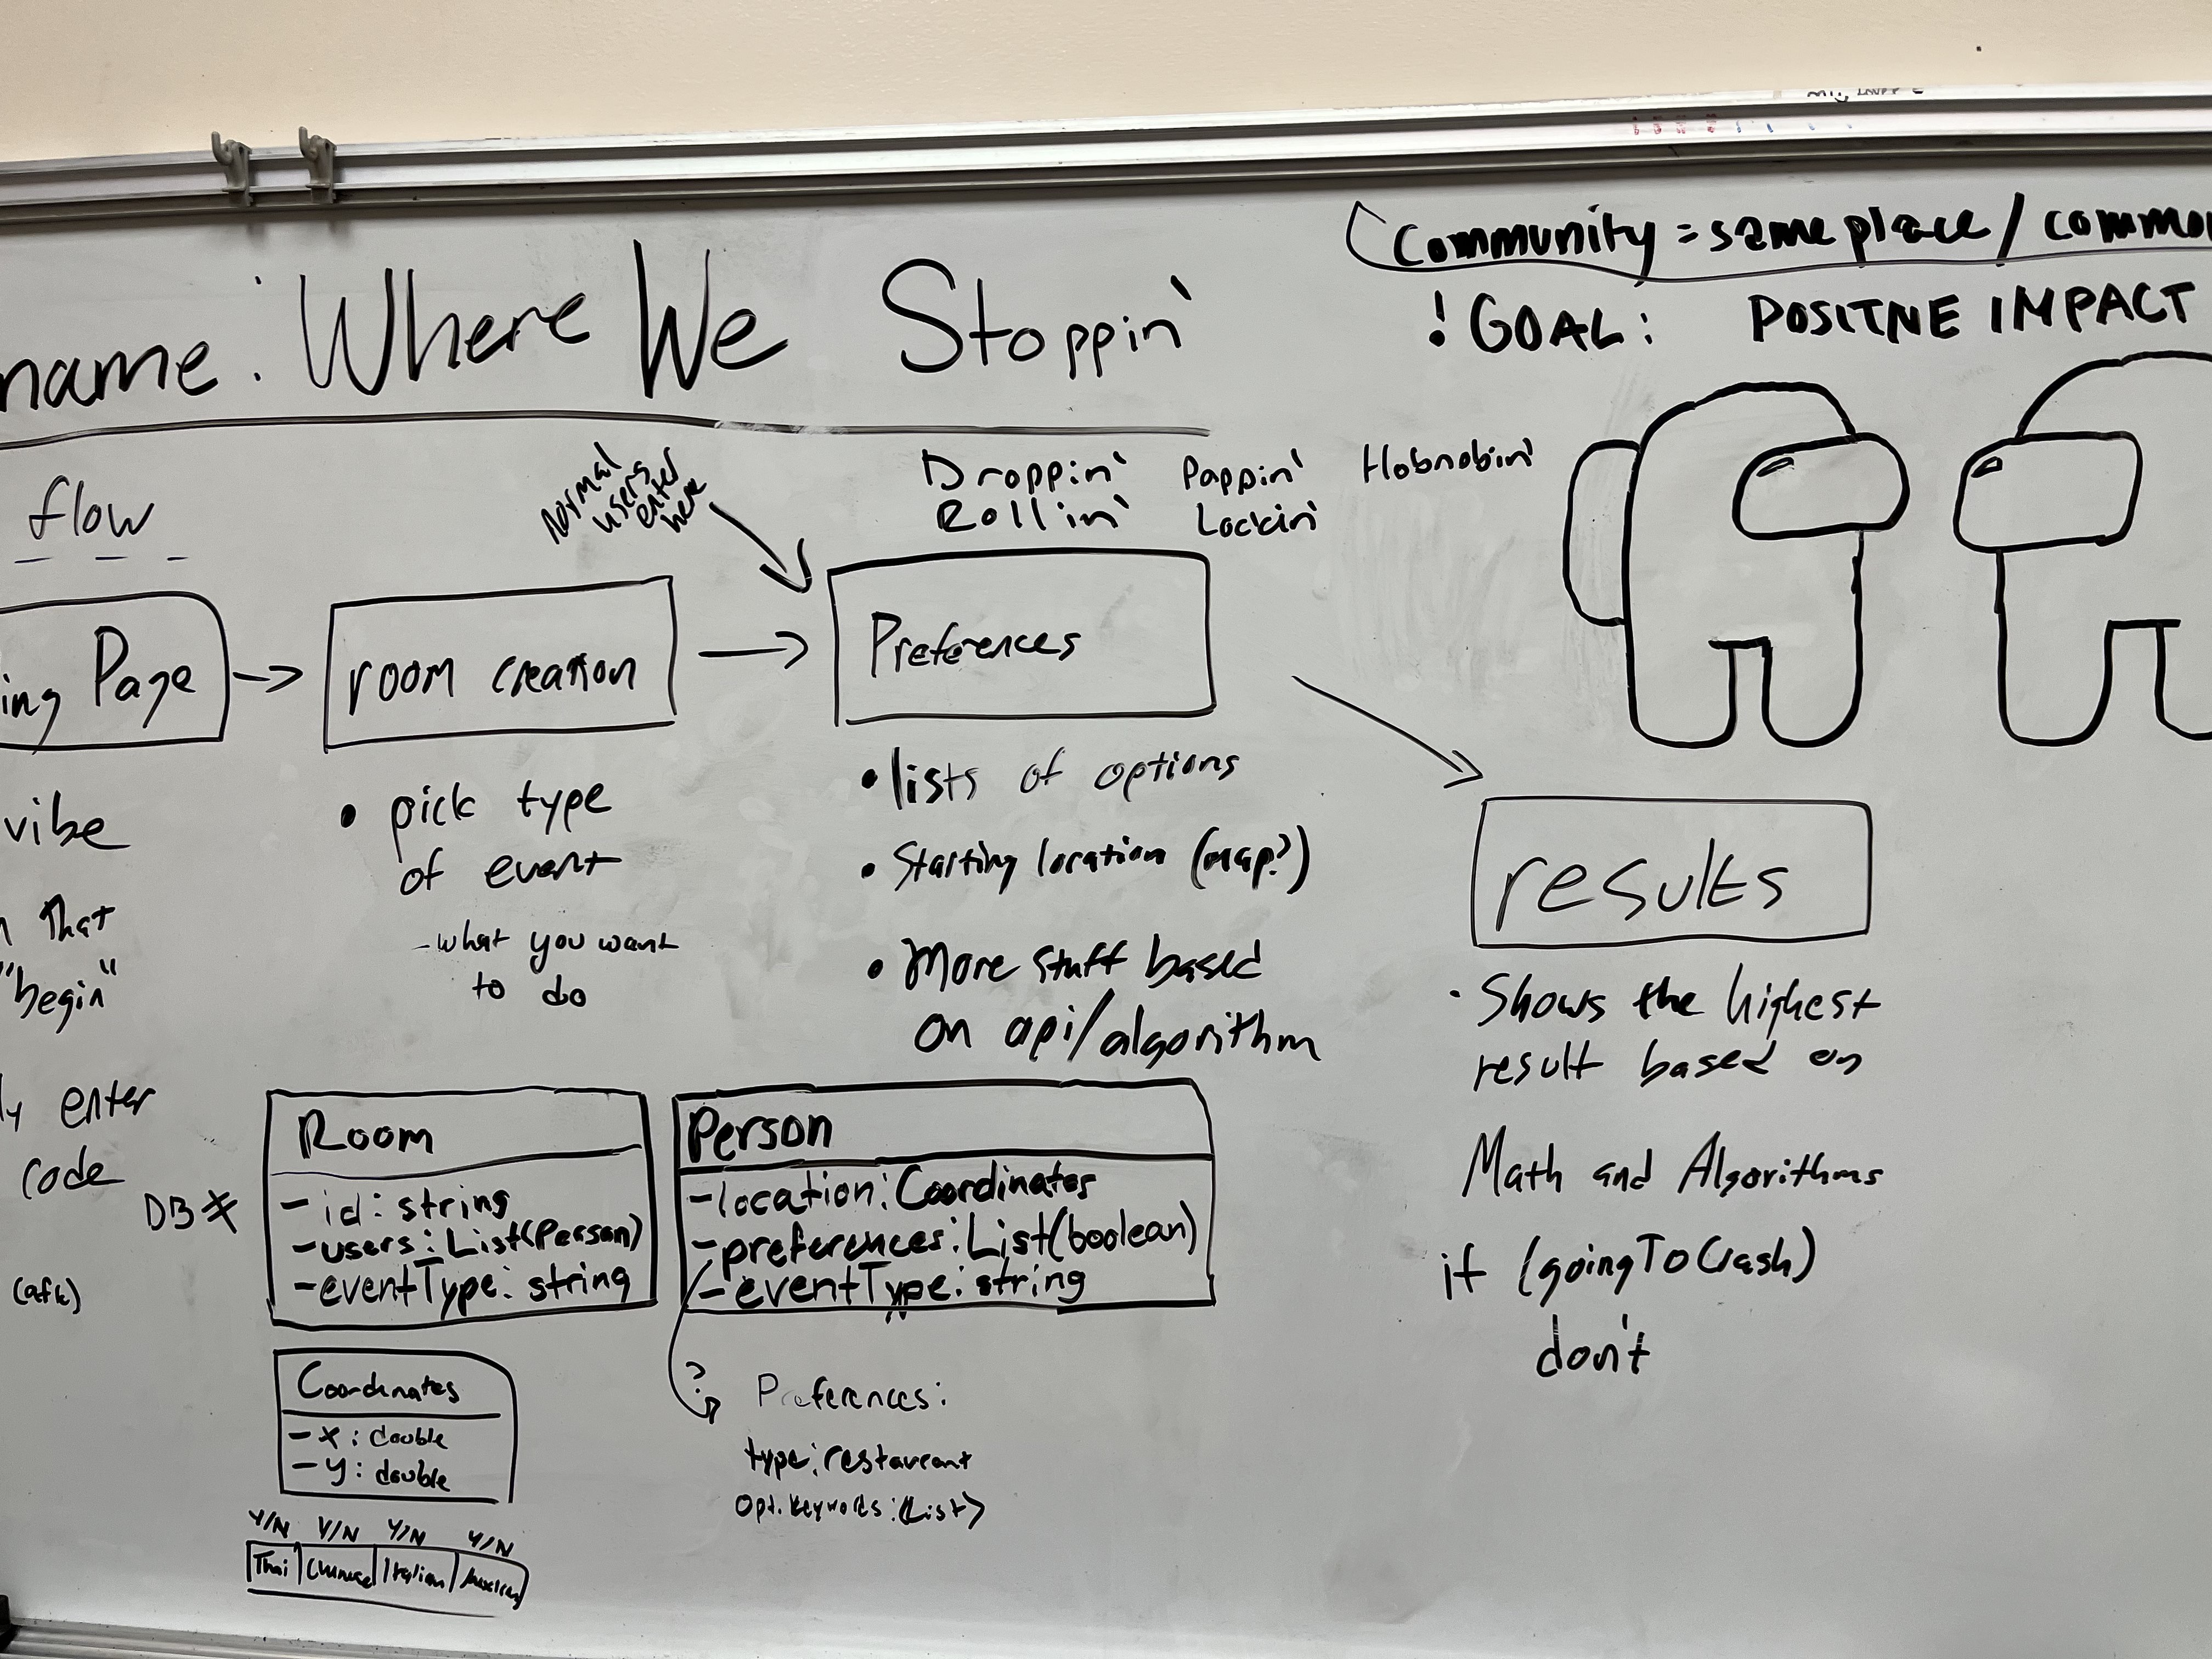 Community = same place / commo
! GOAL: POSITIVE IMPACT
name: Where We Stoppin'
Droppin' Poppin' Hobnobin'
Rollin' Lockin'
flow
Normal
users
enter
here
ing Page
room creation
Preferences
results
vibe
n that
"begin"
ly enter
code
(afk)
• pick type
of event
- what you want
to do
• lists of options
• Starting location (map?)
• More stuff based
on api/algorithm
• Shows the highest
result based on
Math and Algorithms
if (goingToCrash)
don't
DB *
Room
- id: string
- users: List(Person)
- eventType: string
Person
- location: Coordinates
- preferences: List(boolean)
- eventType: string
Coordinates
- x: double
- y: double
Y/N Y/N Y/N Y/N
Thai Chinese Italian Mexican
?
Preferences:
type: restaurant
opt. keywords: <List>